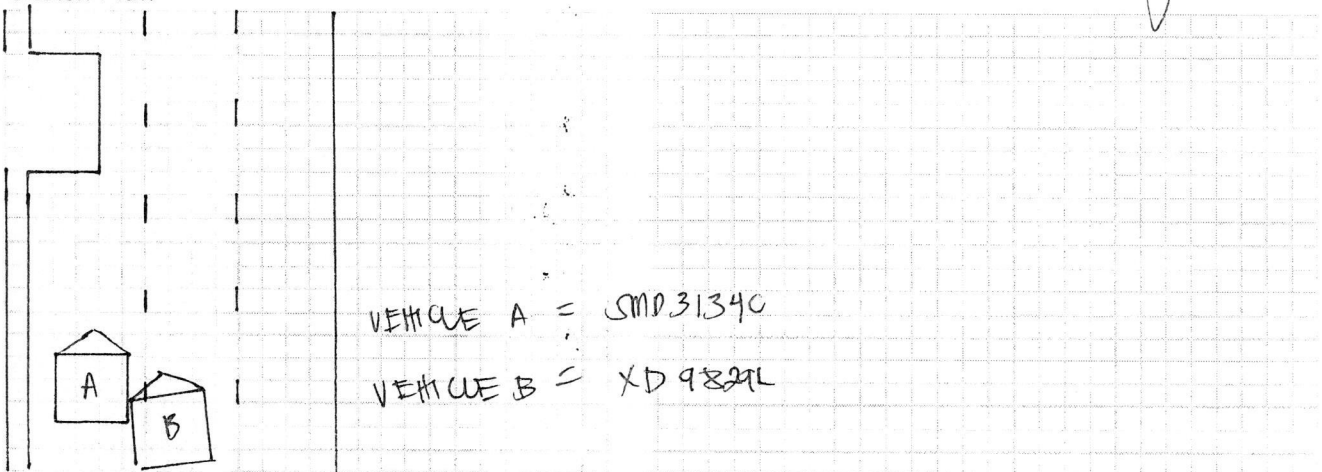 VEHICLE A = SMD3134C
VEHICLE B = XD9829L
A
B